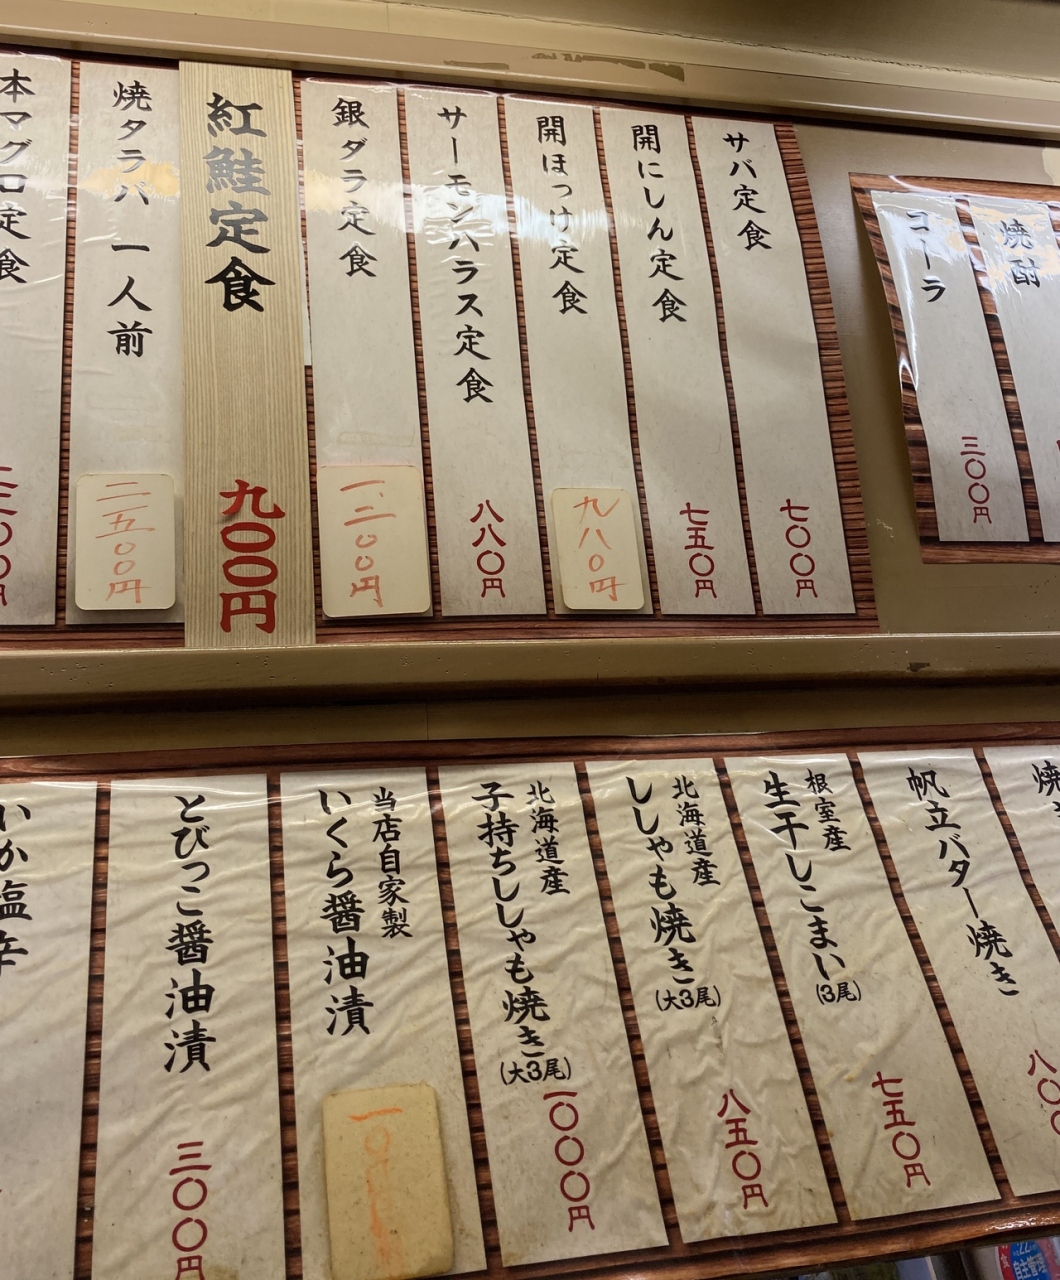 サバ定食
七〇〇円
開にしん定食
七五〇円
開ほっけ定食
九八〇円
サーモンハラス定食
八八〇円
銀ダラ定食
一、二〇〇円
紅鮭定食
九〇〇円
焼タラバ 一人前
二、五〇〇円
本マグロ定食
焼酎
コーラ
三〇〇円
帆立バター焼き
根室産
生干しこまい
(3尾)
七五〇円
北海道産
ししゃも焼き
(大3尾)
八五〇円
北海道産
子持ちししゃも焼き
(大3尾)
一〇〇〇円
当店自家製
いくら醤油漬
とびっこ醤油漬
三〇〇円
いか塩辛